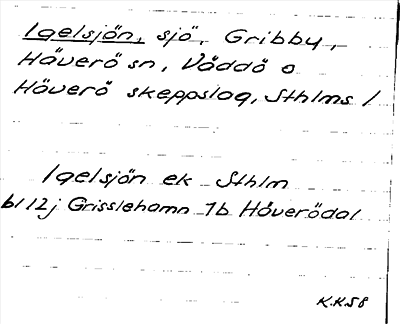 Igelsjön, sjö, Gribby,
Häverö sn, Väddö o
Häverö skeppslag, Sthlms l
Igelsjön ek Sthlm
bl 12j Grisslehamn 1b Häverödal
K.K.58